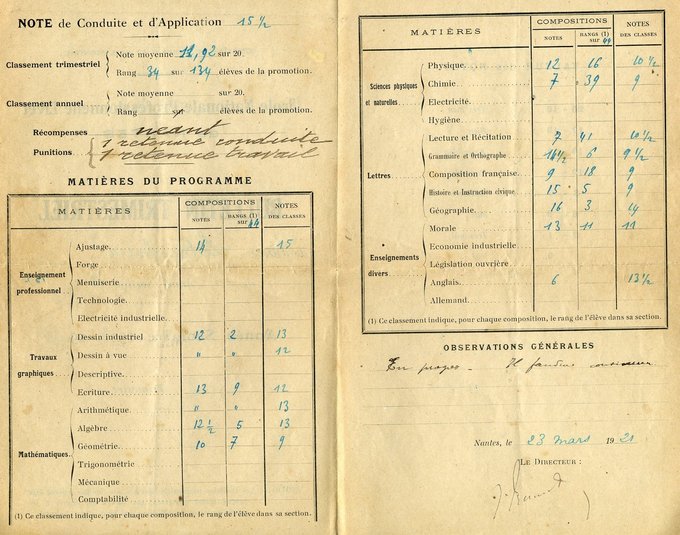 NOTE de Conduite et d'Application 15 ½
Classement trimestriel
Note moyenne 11,92 sur 20.
Rang 34 sur 134 élèves de la promotion.
Classement annuel
Note moyenne sur 20.
Rang sur élèves de la promotion.
Récompenses néant
Punitions 1 retenue conduite
1 retenue travail
MATIÈRES DU PROGRAMME
MATIÈRES COMPOSITIONS NOTES DES CLASSES
NOTES RANGS (1) sur 44
Enseignement professionnel
Ajustage 14 15
Forge
Menuiserie
Technologie
Electricité industrielle
Travaux graphiques
Dessin industriel 12 2 13
Dessin à vue " " 12
Descriptive
Ecriture 13 9 12
Mathématiques
Arithmétique " " 13
Algèbre 12 ½ 5 13
Géométrie 10 7 9
Trigonométrie
Mécanique
Comptabilité
(1) Ce classement indique, pour chaque composition, le rang de l'élève dans sa section.
MATIÈRES COMPOSITIONS NOTES DES CLASSES
NOTES RANGS (1) sur 44
Sciences physiques et naturelles
Physique 12 16 10 ½
Chimie 7 39 9
Electricité
Hygiène
Lettres
Lecture et Récitation 7 41 10 ½
Grammaire et Orthographe 6 9 ½
Composition française 9 18 9
Histoire et Instruction civique 15 5 9
Géographie 16 3 14
Enseignements divers
Morale 13 11 11
Economie industrielle
Législation ouvrière
Anglais 6 13 ½
Allemand
(1) Ce classement indique, pour chaque composition, le rang de l'élève dans sa section.
OBSERVATIONS GÉNÉRALES
En progrès - Il faudra continuer
Nantes, le 23 mars 1921
LE DIRECTEUR :